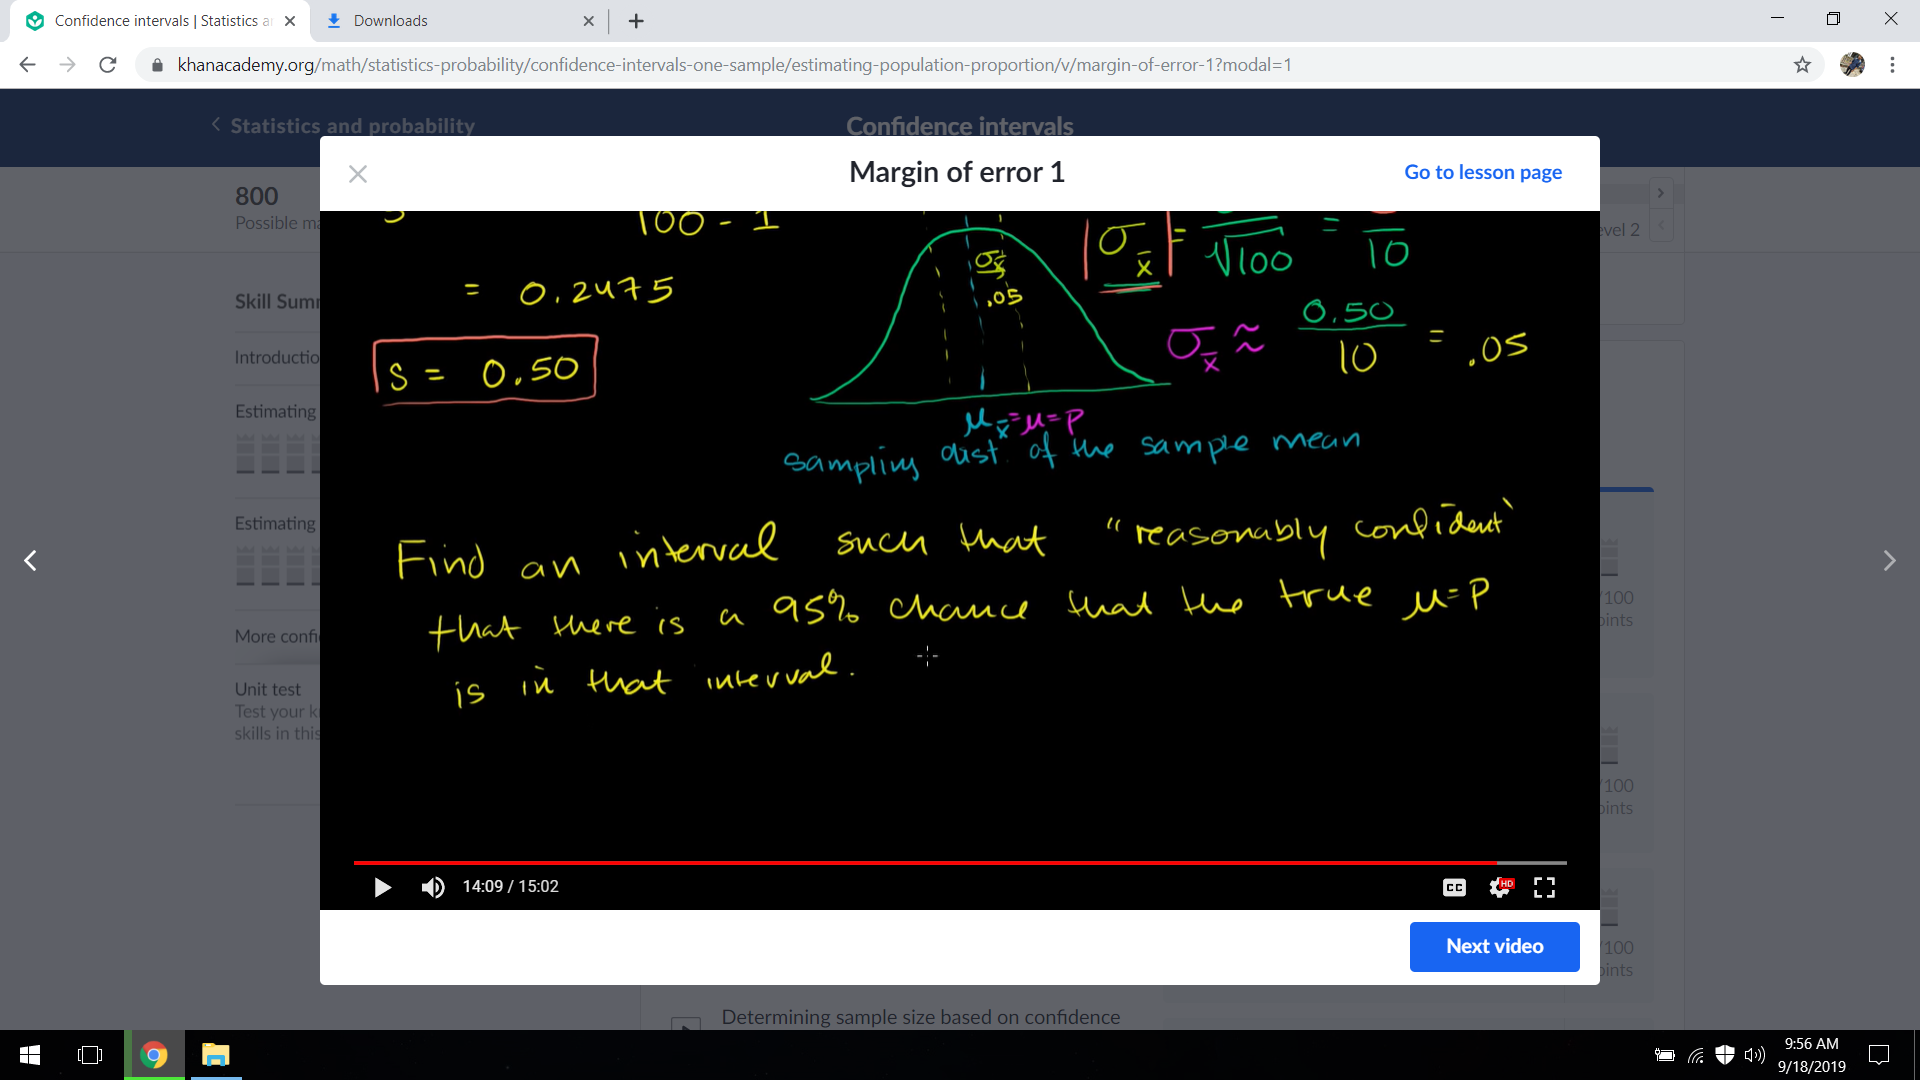 Confidence intervals | Statistics a
Downloads
khanacademy.org/math/statistics-probability/confidence-intervals-one-sample/estimating-population-proportion/v/margin-of-error-1?modal=1
Statistics and probability
Confidence intervals
Margin of error 1
Go to lesson page
800
Possible m
evel 2
Skill Sum
Introductio
Estimating
Estimating
More confi
Unit test
Test your k
skills in this
100 - 1
= 0.2475
S = 0.50
σx̄
.05
σx̄ = / √100 = / 10
σx̄ ≈ 0.50 / 10 = .05
μx̄ = μ = p
Sampling dist. of the sample mean
Find an interval such that "reasonably confident"
that there is a 95% chance that the true μ=p
is in that interval.
14:09 / 15:02
CC
HD
Next video
/100
oints
/100
oints
/100
oints
Determining sample size based on confidence
9:56 AM
9/18/2019